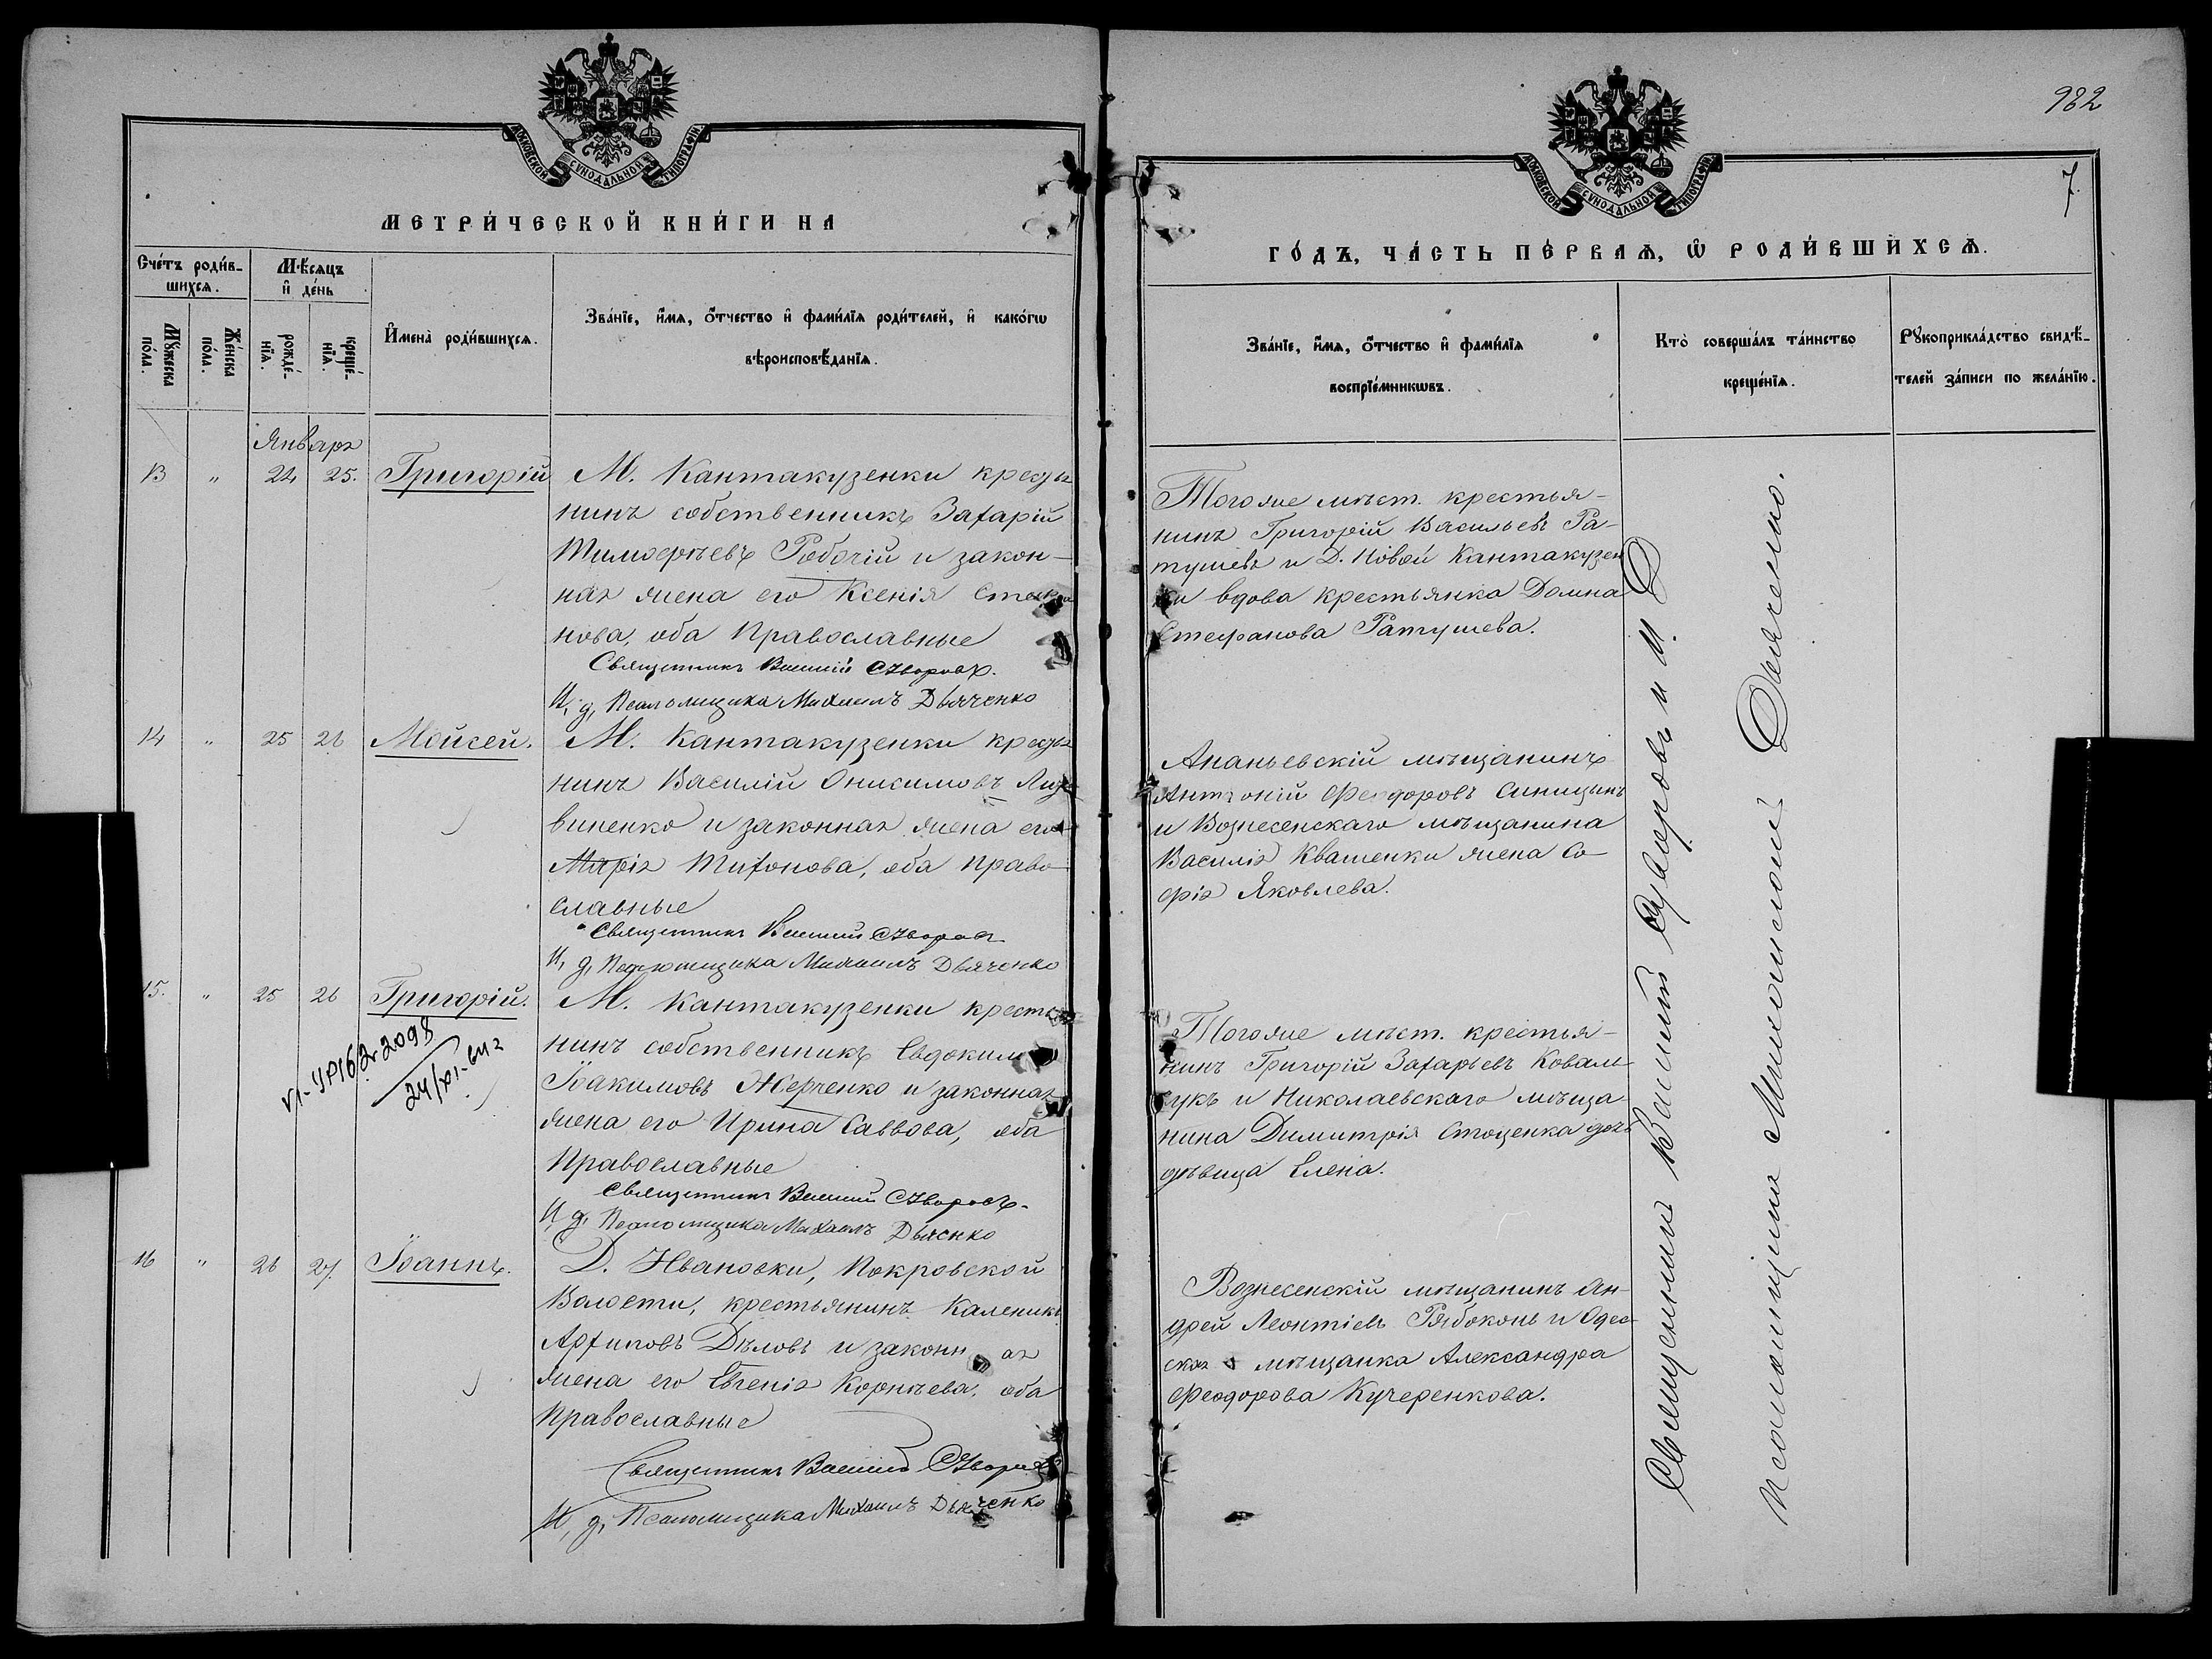 МОСКОВСКОЙ СѴНОДАЛЬНОЙ ТИПОГРАФІИ
МЕТРИ́ЧЕСКОЙ КНИ́ГИ НА
Сче́тъ роди́в-
шихсѧ.
Мѣ́сѧцъ
и҆ де́нь
Мꙋ́жеска
по́ла.
Же́нска
по́ла.
рожде́-
нїѧ.
креще́-
нїѧ.
И҆мена̀ роди́вшихсѧ.
Зва́нїе, и҆́мѧ, ѻ҆́тчество и҆ фами́лїѧ роди́телей, и҆ како́гѡ
вѣроисповѣ́данїѧ.
Январь
13 " 24 25. Григорій М. Кантакузенки крестья
нинъ собственникъ Захарій
Тимоѳеевъ Рабочій и закон-
ная жена его Ксенія
нова, оба Православные
Священникъ Василій
И, д, Псаломщика Михаилъ Дьяченко
14 " 25 26 Мойсей. М. Кантакузенки крестья
нинъ Василій Онисимовъ
виненко и законная жена его
Марія Тихонова, оба Право-
славные
Священникъ Василій
И, д, Псаломщика Михаилъ Дьяченко
15. " 25 26 Григорій. М. Кантакузенки крестья
нинъ собственникъ Евдокимъ
Іоакимовъ Жерченко и законная
жена его Ирина Саввова, оба
Православные
Священникъ Василій
И, д, Псаломщика Михаилъ Дьяченко
16 " 26 27. Іоаннъ. Д. Ивановки, Покровской
Волости, крестьянинъ Каленикъ
Архиповъ Дѣловъ и законн ая
жена его Евгенія Корнѣева, оба
Православные
Священникъ Василій
И, д, Псаломщика Михаилъ Дьяченко
982
7.
МОСКОВСКОЙ СѴНОДАЛЬНОЙ ТИПОГРАФІИ
ГО́ДЪ, ЧА́СТЬ ПЕ́РВАѦ, Ѡ҆ РОДИ́ВШИХСѦ.
Зва́нїе, и҆́мѧ, ѻ҆́тчество и҆ фами́лїѧ
воспрїе́мникѡвъ.
Кто̀ соверша́лъ та́инство
креще́нїѧ.
Рꙋкоприкла́дство свидѣ́-
телей за́писи по жела́нїю.
Тогоже мѣст. крестья-
нинъ Григорій Васильевъ Ра-
тушевъ и Д. Новой Кантакузен
ки вдова крестьянка Домна
Стефанова Ратушева.
Ананьевскій мѣщанинъ
Антоній Ѳеодоровъ Синицынъ
и Вознесенскаго мѣщанина
Василія Квашенки жена Со-
фія Яковлева.
Тогоже мѣст. крестья-
нинъ Григорій Захарьевъ Коваль-
чукъ и Николаевскаго мѣща
нина Димитрія Стоценка дочь
дѣвица Елена.
Вознесенскій мѣщанинъ Ан-
дрей Леонтіевъ Рябоконь и Одес-
ская мѣщанка Александра
Ѳеодорова Кучеренкова.
Священникъ Василій и И. Д
Псаломщика Дьяченко.